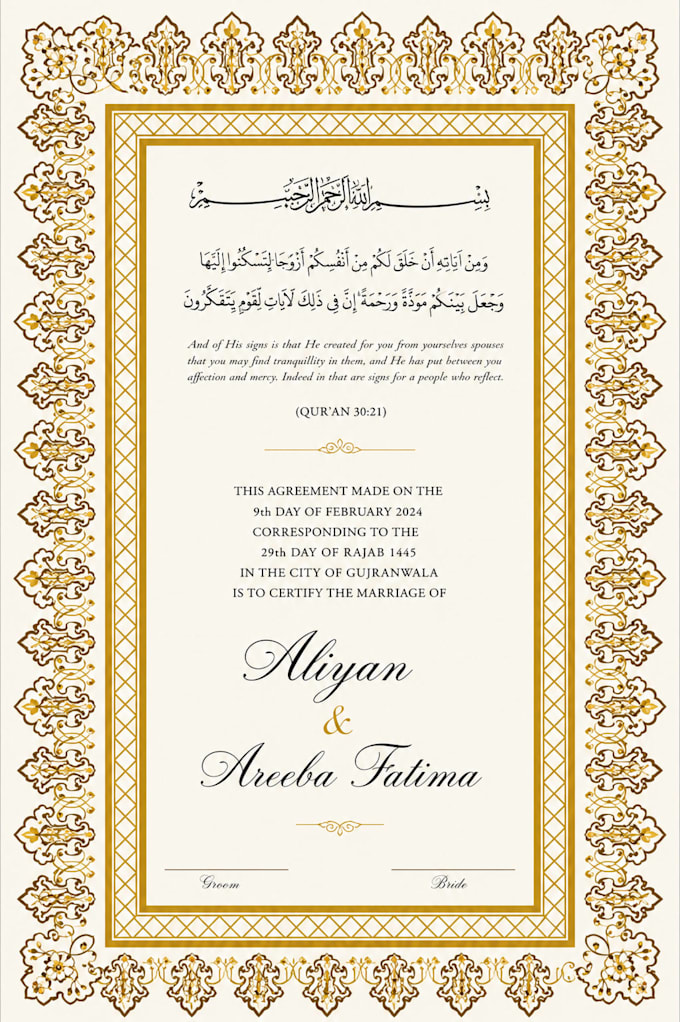 بِسْمِ اللهِ الرَّحْمٰنِ الرَّحِيْمِ
وَمِنْ آيَاتِهِ أَنْ خَلَقَ لَكُمْ مِنْ أَنْفُسِكُمْ أَزْوَجًا لِتَسْكُنُوا إِلَيْهَا
وَجَعَلَ بَيْنَكُمْ مَوَدَّةً وَرَحْمَةً إِنَّ فِي ذَلِكَ لَآيَاتٍ لِقَوْمٍ يَتَفَكَّرُونَ
And of His signs is that He created for you from yourselves spouses
that you may find tranquillity in them, and He has put between you
affection and mercy. Indeed in that are signs for a people who reflect.
(QUR'AN 30:21)
THIS AGREEMENT MADE ON THE
9th DAY OF FEBRUARY 2024
CORRESPONDING TO THE
29th DAY OF RAJAB 1445
IN THE CITY OF GUJRANWALA
IS TO CERTIFY THE MARRIAGE OF
Aliyan
&
Areeba Fatima
Groom Bride